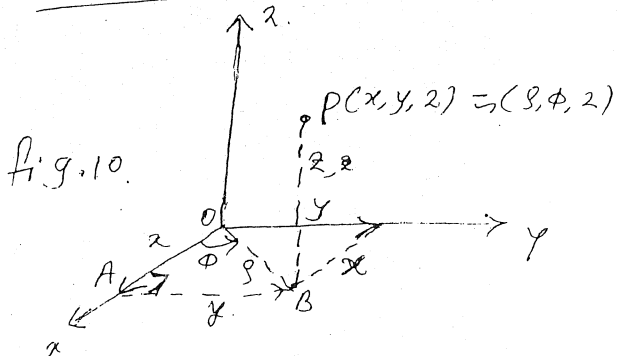 z.
P(x, y, z) = (ρ, φ, z)
fig. 10.
z
O
y
x
φ
ρ
x
y
A
B
y
x